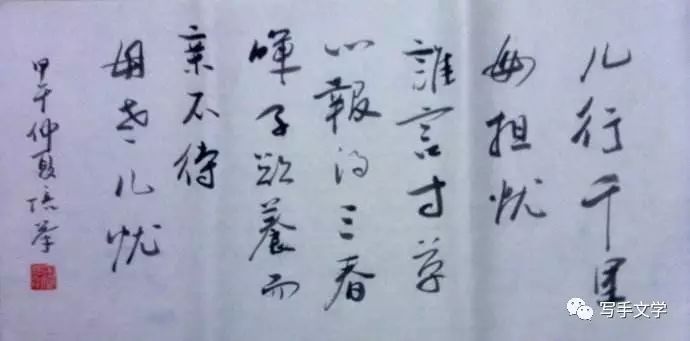 儿行千里
母担忧
誰言寸草
心報得三春
暉子欲養而
亲不待
母老儿忧
甲午仲夏
写手文学